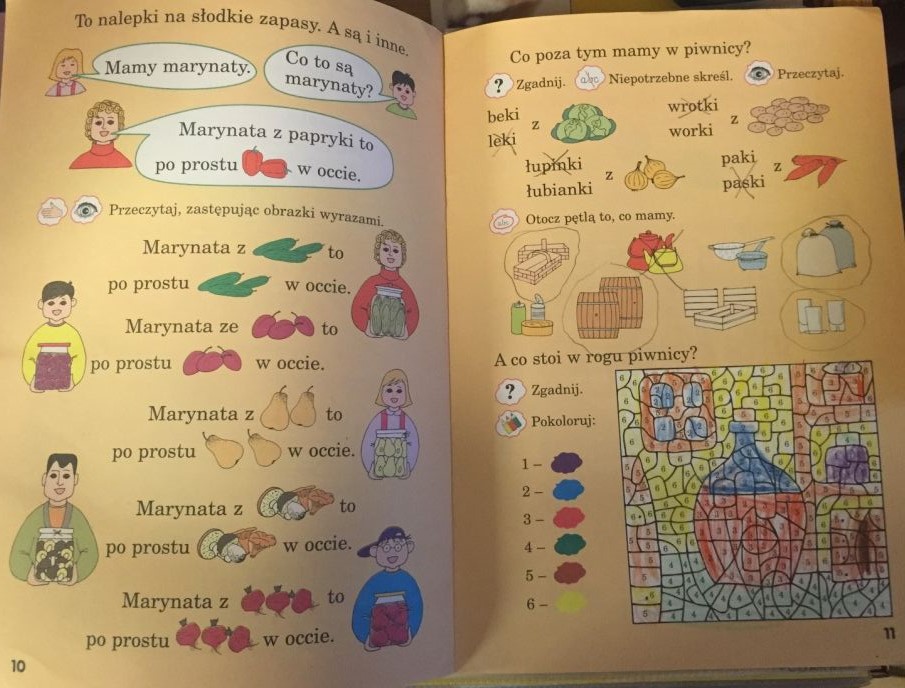 To nalepki na słodkie zapasy. A są i inne.
Mamy marynaty.
Co to są
marynaty?
Marynata z papryki to
po prostu w occie.
Przeczytaj, zastępując obrazki wyrazami.
Marynata z to
po prostu w occie.
Marynata ze to
po prostu w occie.
Marynata z to
po prostu w occie.
Marynata z to
po prostu w occie.
Marynata z to
po prostu w occie.
10
Co poza tym mamy w piwnicy?
? Zgadnij. abc Niepotrzebne skreśl. Przeczytaj.
beki
leki
z
wrotki
worki
z
łupinki
łubianki
z
paki
paski
z
abc Otocz pętlą to, co mamy.
A co stoi w rogu piwnicy?
? Zgadnij.
Pokoloruj:
1 –
2 –
3 –
4 –
5 –
6 –
11